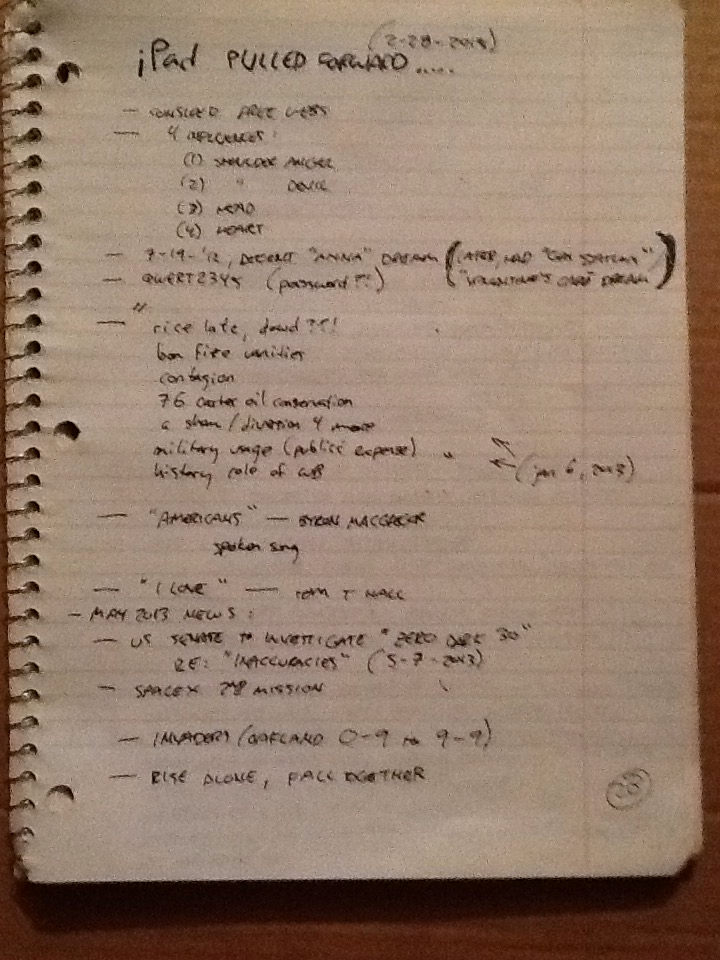 (2-28-2013)
iPad PULLED FORWARD.....
— FREE
— 4 INFLUENCES:
(1) SHOULDER ANGEL
(2) " DEVIL
(3) HEAD
(4) HEART
— 7-19-'12, "ANNA" DREAM (LATER, HAD
"VALENTINE'S CARD" DREAM)
— QWERT2345 (password?!)
— " rice late, ??!
bon fire vanities
contagion
76 carter oil conservation
a sham/diversion 4 more
military usage (public expense) "
history role of (jan 6, 2013)
— "AMERICANS" — BYRON MACGREGOR
spoken song
— "I LOVE" — TOM T HALL
— MAY 2013 NEWS:
— US SENATE TO INVESTIGATE "ZERO DARK 30"
RE: "INACCURACIES" (5-7-2013)
— SPACEX 2ND MISSION
— INVADERS (OAKLAND 0-9 to 9-9)
— RISE ALONE, FALL TOGETHER